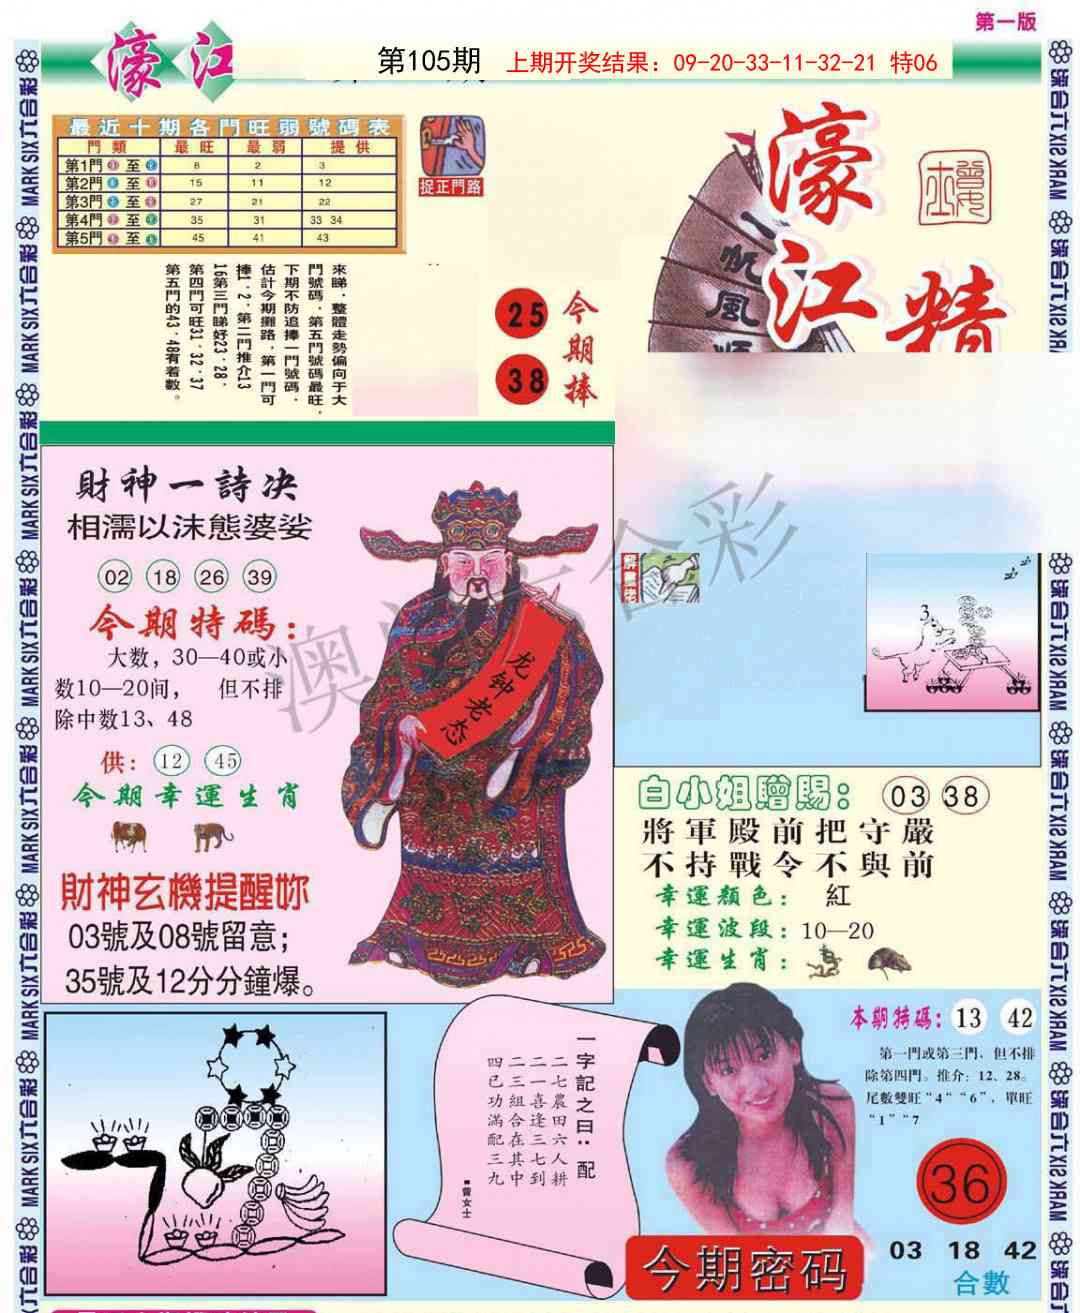 第一版
濠江
第105期 上期开奖结果：09-20-33-11-32-21 特06
最近十期各門旺弱號碼表
門類 最旺 最弱 提供
第1門 至 8 2 3
第2門 至 15 11 12
第3門 至 27 21 22
第4門 至 35 31 33 34
第5門 至 45 41 43
捉正門路
濠江
精
一帆風順
來睇．整體走勢偏向于大
門號碼．第五門號碼最旺．
下期不防追捧一門號碼．
估計今期攤路．第一門可
捧1．2．第二門推介13
16第三門睇好23．28．
第四門可旺31．32．37
第五門的43．48有着數。
25
38
今期捧
財神一詩决
相濡以沫態婆娑
02 18 26 39
今期特碼：
大数，30—40或小
数10—20间， 但不排
除中数13、48
供： 12 45
今期幸運生肖
財神玄機提醒妳
03號及08號留意；
35號及12分分鐘爆。
龙钟老态
澳 六合彩
3
白小姐贈賜： 03 38
將軍殿前把守嚴
不持戰令不與前
幸運顏色： 紅
幸運波段：10—20
幸運生肖：
一字記之曰：配
二七農田六人耕
二一喜逢三七到
二三組合在其中
四已功滿配三九
■曾女士
本期特碼：13 42
第一門或第三門，但不排
除第四門。推介：12、28。
尾數雙旺“4”“6”，單旺
“1”“7
36
今期密码
03 18 42
合數
MARK SIX 六合彩